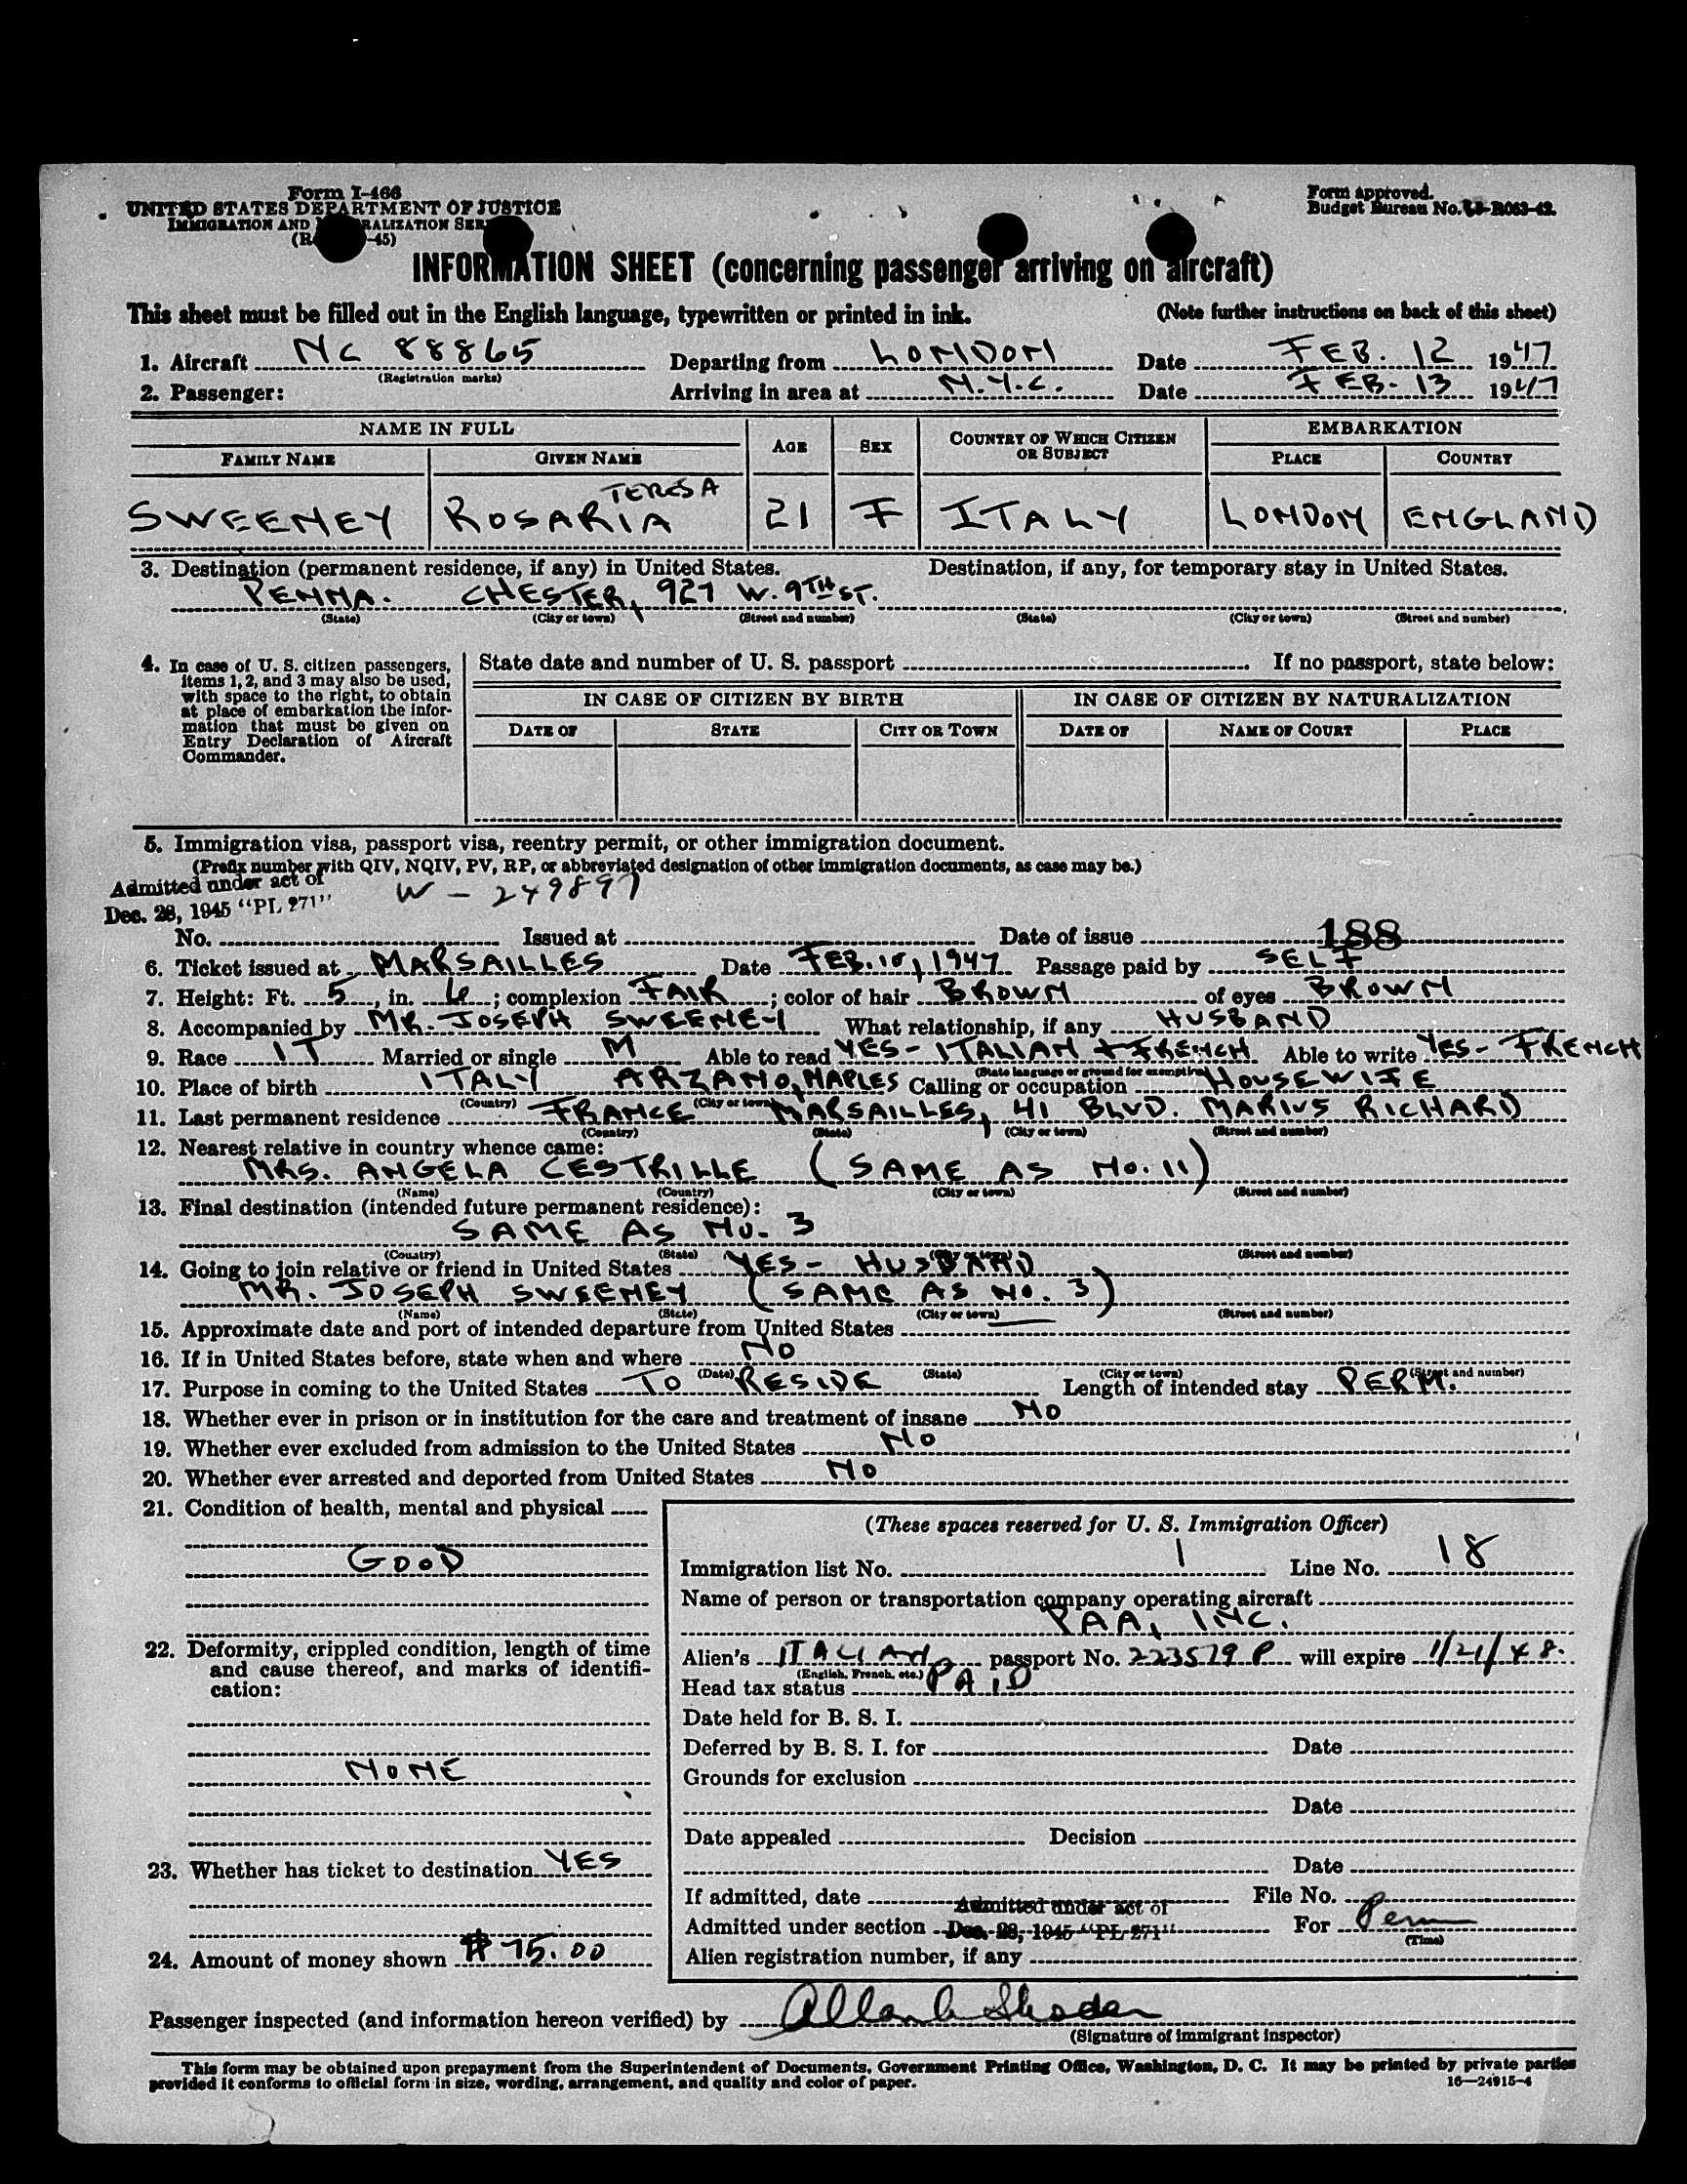 Form I-466
UNITED STATES DEPARTMENT OF JUSTICE
IMMIGRATION AND RALIZATION SER
(R -45)
Form approved.
Budget Bureau No. R063-42.
INFORMATION SHEET (concerning passenger arriving on aircraft)
This sheet must be filled out in the English language, typewritten or printed in ink. (Note further instructions on back of this sheet)
1. Aircraft NC 88865 Departing from LONDON Date FEB. 12 1947
(Registration marks)
2. Passenger: Arriving in area at N.Y.C. Date FEB. 13 1947
NAME IN FULL AGE SEX COUNTRY OF WHICH CITIZEN OR SUBJECT EMBARKATION
FAMILY NAME GIVEN NAME PLACE COUNTRY
TERESA
SWEENEY ROSARIA 21 F ITALY LONDON ENGLAND
3. Destination (permanent residence, if any) in United States. Destination, if any, for temporary stay in United States.
PENNA. CHESTER, 927 W. 9TH ST.
(State) (City or town) (Street and number) (State) (City or town) (Street and number)
4. In case of U. S. citizen passengers, items 1, 2, and 3 may also be used, with space to the right, to obtain at place of embarkation the information that must be given on Entry Declaration of Aircraft Commander.
State date and number of U. S. passport If no passport, state below:
IN CASE OF CITIZEN BY BIRTH IN CASE OF CITIZEN BY NATURALIZATION
DATE OF STATE CITY OR TOWN DATE OF NAME OF COURT PLACE
5. Immigration visa, passport visa, reentry permit, or other immigration document.
(Prefix number with QIV, NQIV, PV, RP, or abbreviated designation of other immigration documents, as case may be.)
Admitted under act of
Dec. 28, 1945 "PL 271" W - 249897
No. Issued at Date of issue 188
6. Ticket issued at MARSAILLES Date FEB. 10, 1947 Passage paid by SELF
7. Height: Ft. 5, in. 6; complexion FAIR; color of hair BROWN of eyes BROWN
8. Accompanied by MR. JOSEPH SWEENEY What relationship, if any HUSBAND
9. Race IT Married or single M Able to read YES - ITALIAN + FRENCH Able to write YES - FRENCH
(State language or ground for exemption)
10. Place of birth ITALY ARZANO, NAPLES Calling or occupation HOUSEWIFE
(Country) (City or town)
11. Last permanent residence FRANCE MARSAILLES, 41 BLVD. MARIUS RICHARD
(Country) (State) (City or town) (Street and number)
12. Nearest relative in country whence came:
MRS. ANGELA CESTRILLE (SAME AS NO. 11)
(Name) (Country) (City or town) (Street and number)
13. Final destination (intended future permanent residence):
SAME AS NO. 3
(Country) (State) (City or town) (Street and number)
14. Going to join relative or friend in United States YES - HUSBAND
MR. JOSEPH SWEENEY (SAME AS NO. 3)
(Name) (State) (City or town) (Street and number)
15. Approximate date and port of intended departure from United States
16. If in United States before, state when and where NO
(Date) (State) (City or town) (Street and number)
17. Purpose in coming to the United States TO RESIDE Length of intended stay PERM.
18. Whether ever in prison or in institution for the care and treatment of insane NO
19. Whether ever excluded from admission to the United States NO
20. Whether ever arrested and deported from United States NO
21. Condition of health, mental and physical
GOOD
22. Deformity, crippled condition, length of time and cause thereof, and marks of identification:
NONE
23. Whether has ticket to destination YES
24. Amount of money shown $75.00
(These spaces reserved for U. S. Immigration Officer)
Immigration list No. 1 Line No. 18
Name of person or transportation company operating aircraft
PAA, INC.
Alien's ITALIAN passport No. 223579 P will expire 1/21/48.
(English, French, etc.)
Head tax status PAID
Date held for B. S. I.
Deferred by B. S. I. for Date
Grounds for exclusion
Date
Date appealed Decision
Date
If admitted, date File No.
Admitted under act of
Admitted under section Dec. 28, 1945 "PL 271" For Perm
(Time)
Alien registration number, if any
Passenger inspected (and information hereon verified) by
(Signature of immigrant inspector)
This form may be obtained upon prepayment from the Superintendent of Documents, Government Printing Office, Washington, D. C. It may be printed by private parties
provided it conforms to official form in size, wording, arrangement, and quality and color of paper. 16—24915-4